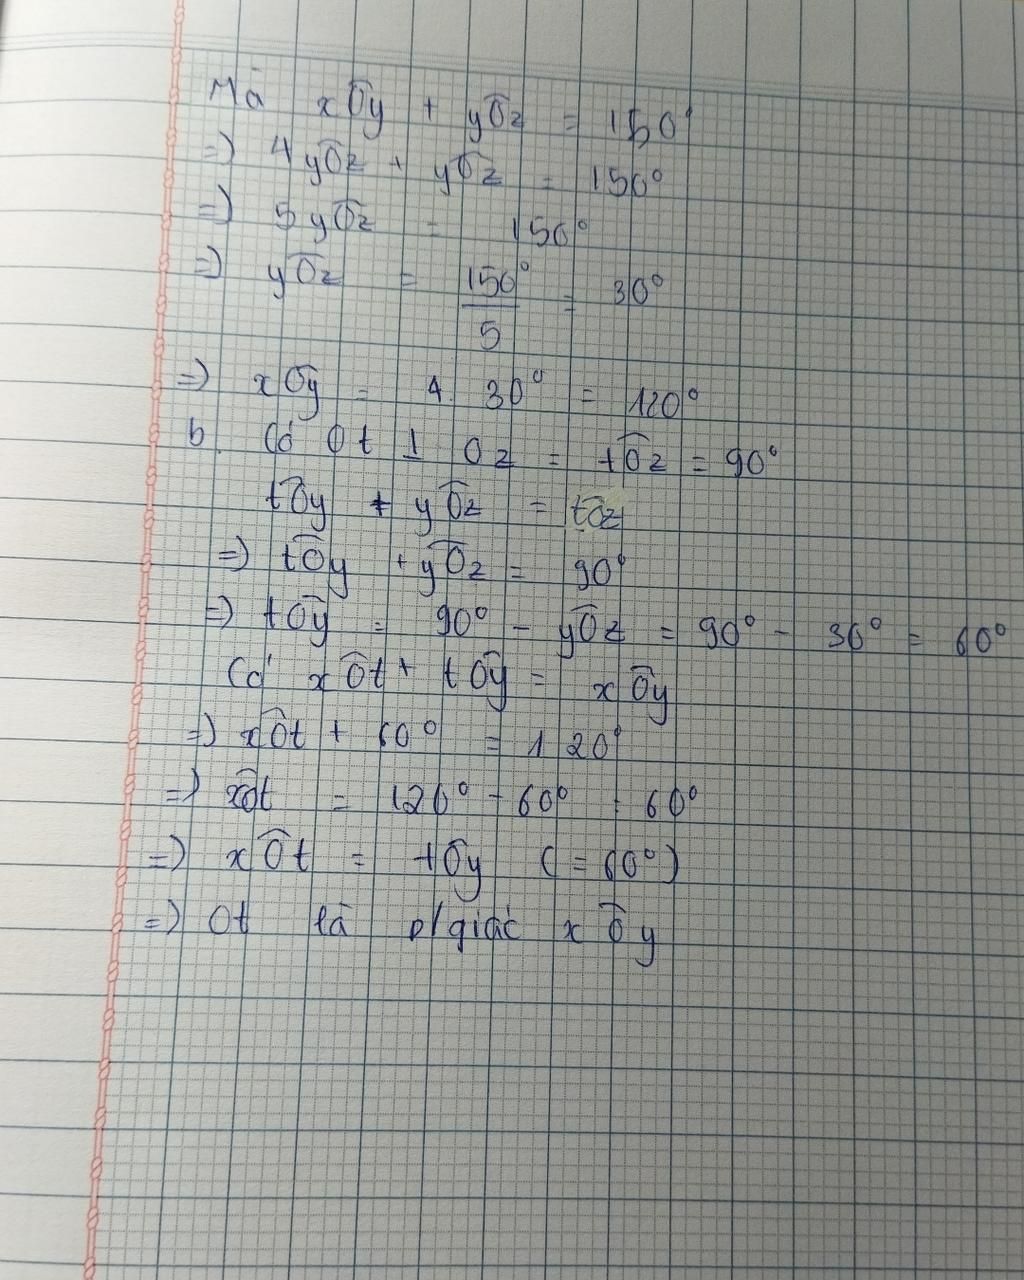 Mà xÔy + yÔz = 150°
=> 4 yÔz + yÔz = 150°
=> 5 yÔz = 150°
=> yÔz = 150°/5 = 30°
=> xÔy = 4. 30° = 120°
b. Có Ot ⊥ Oz = tÔz = 90°
tÔy + yÔz = tÔz
=> tÔy + yÔz = 90°
=> tÔy = 90° - yÔz = 90° - 30° = 60°
Có xÔt + tÔy = xÔy
=> xÔt + 60° = 120°
=> xÔt = 120° - 60° = 60°
=> xÔt = tÔy (= 60°)
=> Ot là p/giác xÔy